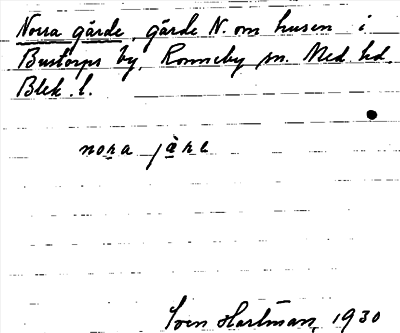 Norra gärde, gärde N. om husen i
Bustorps by, Ronneby sn. Med. hd.
Blek. l.
nora
Sven Hartman, 1930